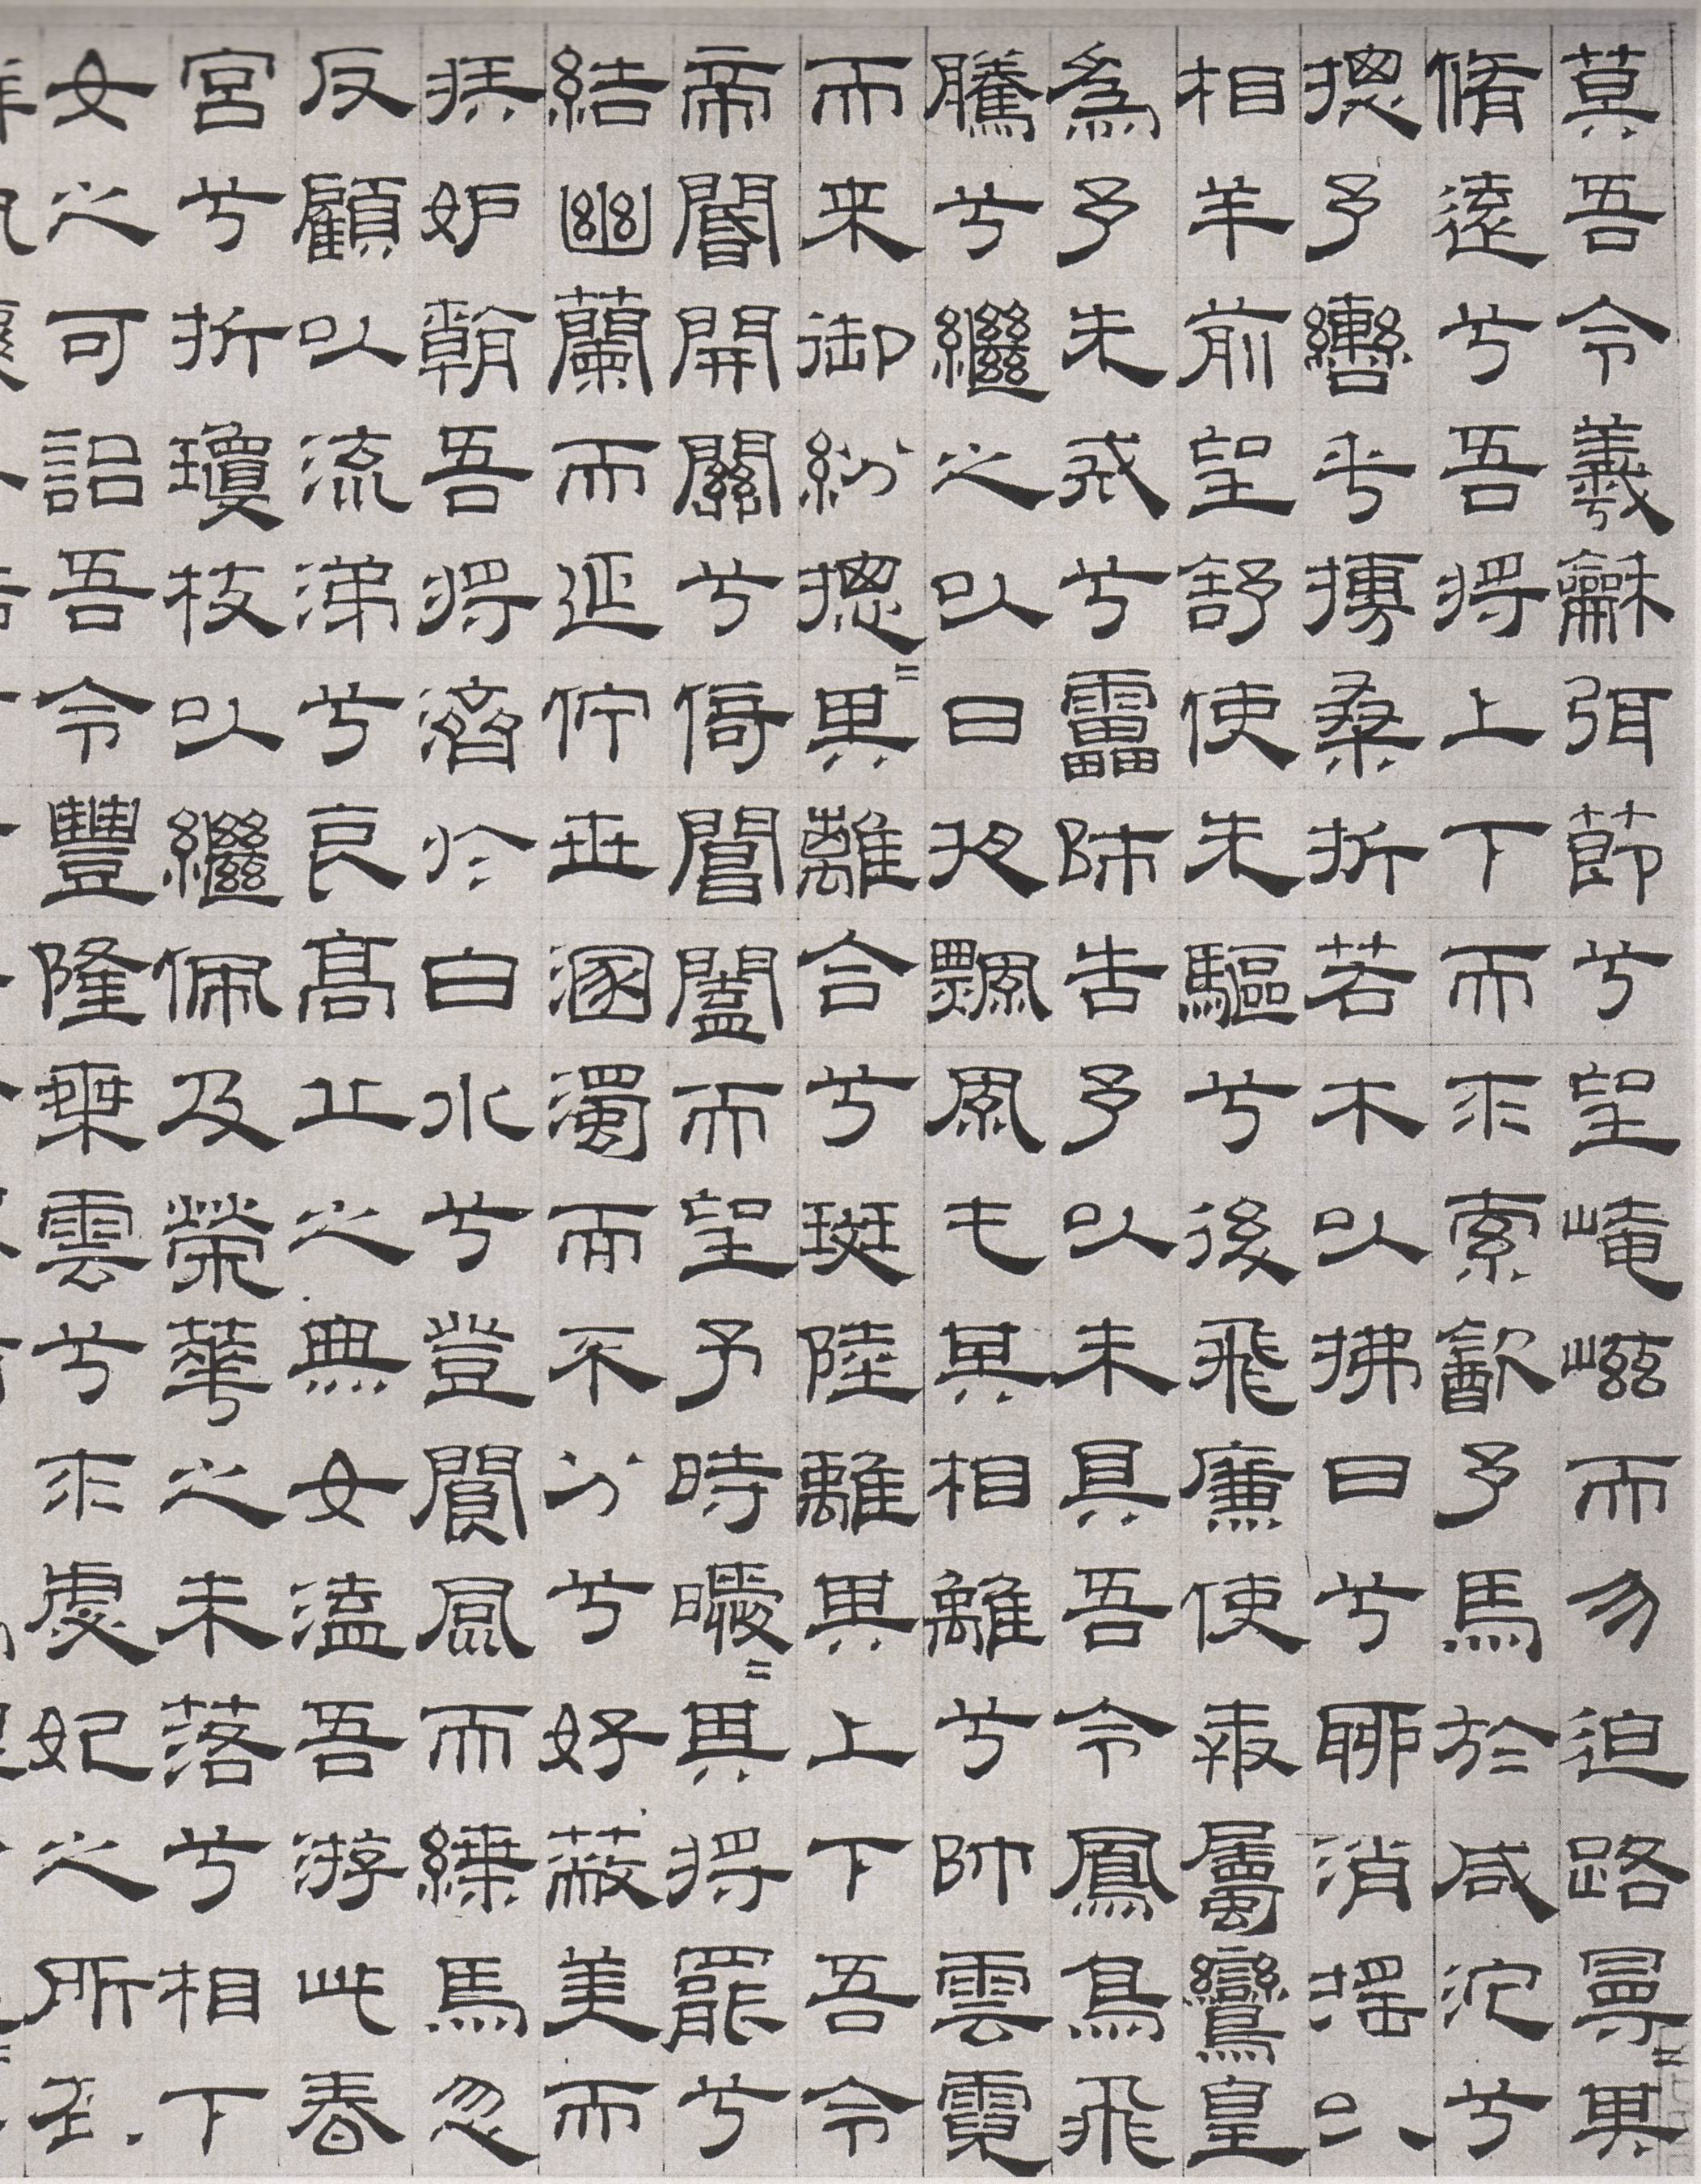 莫吾令羲龢弭節兮望崦嵫而勿迫路曼=其
脩遠兮吾將上下而求索飲予馬於咸沱兮
摠予轡乎搏桑折若木以拂日兮聊消搖以
相羊前望舒使先驅兮後飛廉使奔屬鸞皇
為予先戒兮雷師告予以未具吾令鳳鳥飛
騰兮繼之以日夜飄風屯其相離兮帥雲霓
而来御紛摠=其離合兮斑陸離其上下吾令
帝閽開關兮倚閶闔而望予時曖=其將罷兮
結幽蘭而延佇世溷濁而不分兮好蔽美而
嫉妒朝吾將濟於白水兮登閬風而緤馬忽
反顧以流涕兮哀高丘之無女溘吾游此春
宮兮折瓊枝以繼佩及榮華之未落兮相下
女之可詔吾令豐隆椉雲兮求虙妃之所在